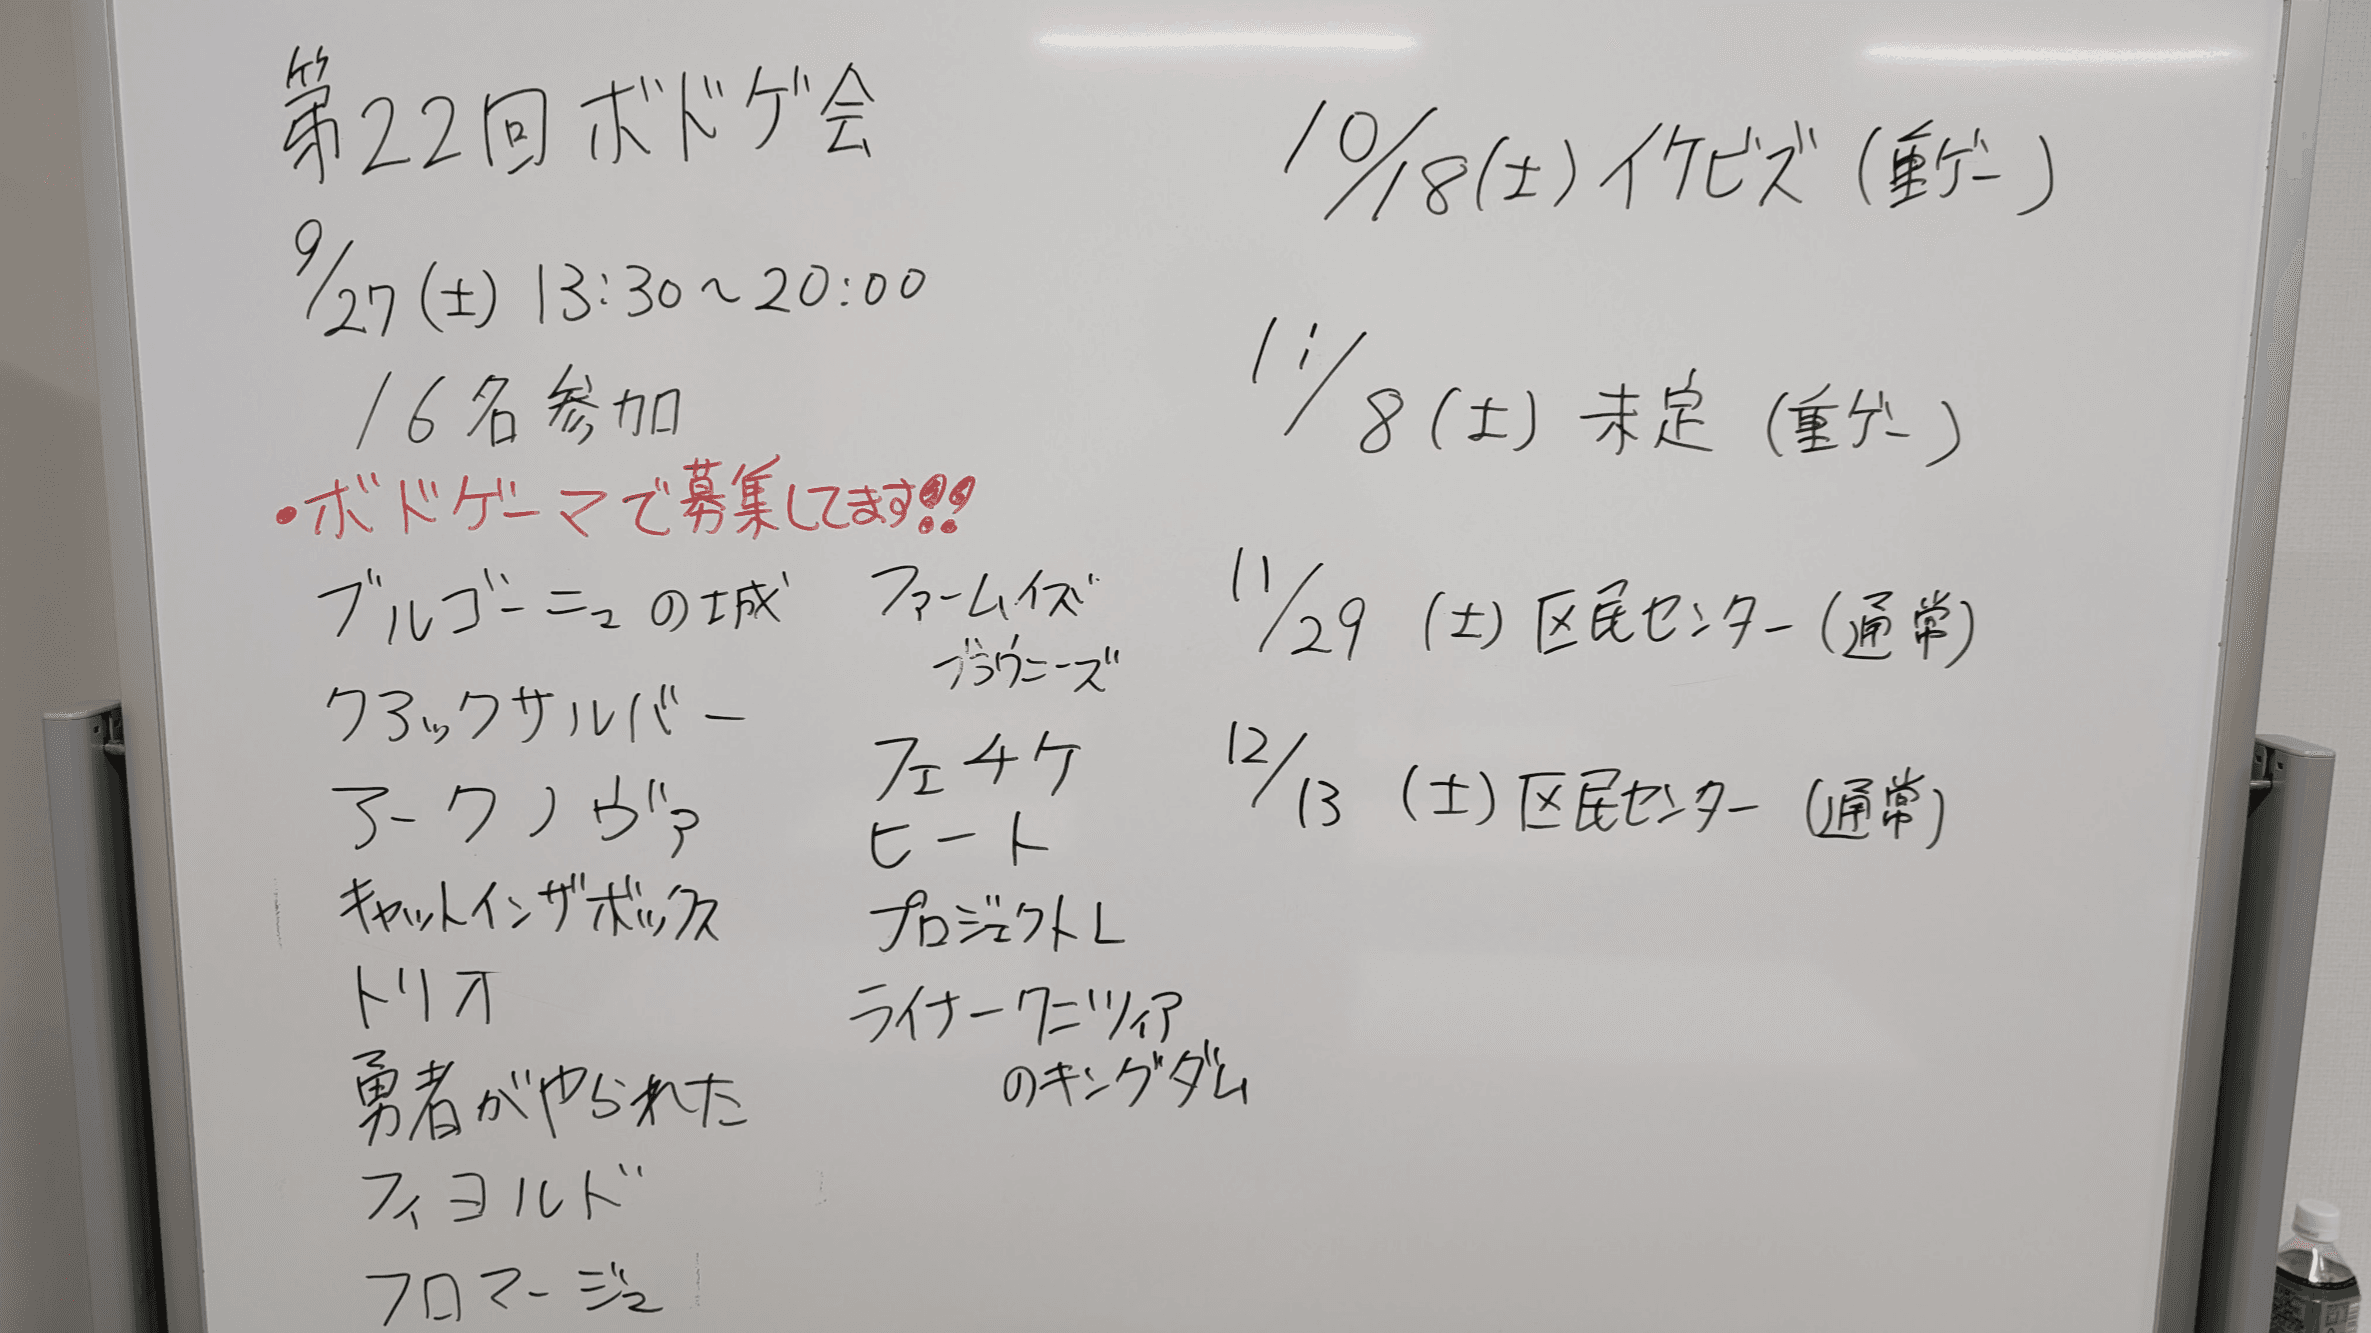 第22回ボドゲ会
9/27(土) 13:30～20:00
16名参加
・ボドゲーマで募集してます!!
ブルゴーニュの城
クアックサルバー
アークノヴァ
キャットインザボックス
トリオ
勇者がやられた
フィヨルド
フロマージュ
ファームイズ
ブラウニーズ
フェチケ
ヒート
プロジェクトL
ライナークニツィア
のキングダム
10/18(土)イケビズ(重ゲー)
11/8(土)未定(重ゲー)
11/29(土)区民センター(通常)
12/13(土)区民センター(通常)